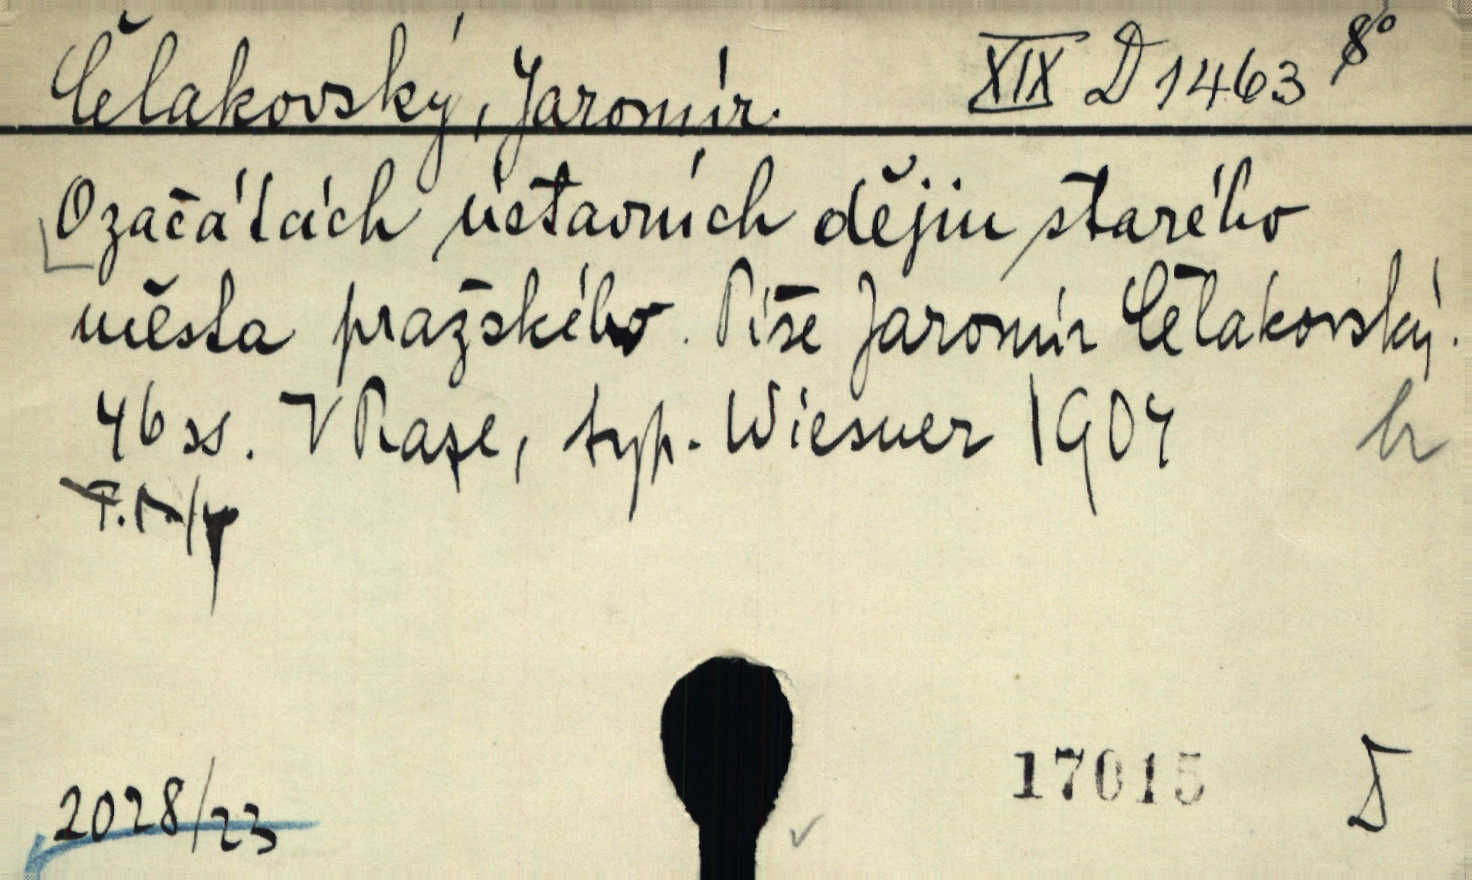 Čelakovský, Jaromír. XIX D 1463 8°
O začátcích ústavních dějin starého
města pražského. Píše Jaromír Čelakovský.
46 ss. V Praze, typ. Wiesner 1904
17015 D
2028/23